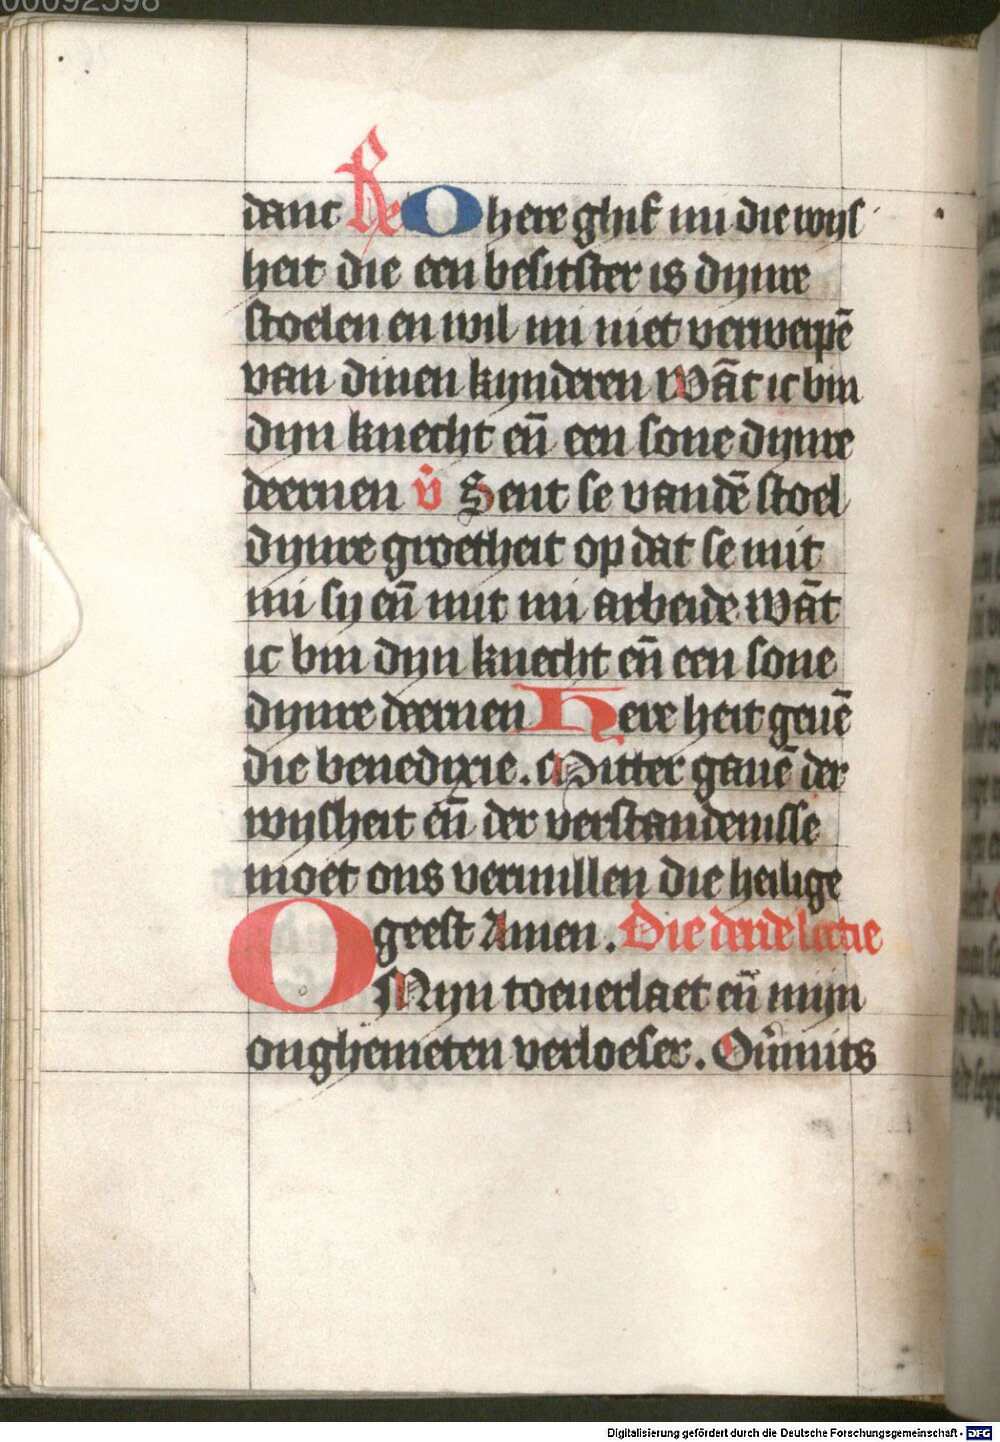 00092598
danc Re O here ghif mi die wijs
heit die een besitster is dijnre
stoelen en wil mi niet verwerpē
van dinen kijnderen Wāt ic bin
dijn knecht eñ een sone dijnre
deernen v̇ Sent se vandē stoel
dijnre groetheit op dat se mit
mi sij eñ mit mi arbeide. Wāt
ic bin dijn knecht eñ een sone
dijnre deernen Here heit geuē
die benedixie. Mitter gauē der
wijsheit eñ der verstandenisse
moet ons vermillen die heilige
geest Amen. Die derde lectie
O Mijn toeuerlaet eñ mijn
onghemeten verloeser. Ou̇mits
Digitalisierung gefördert durch die Deutsche Forschungsgemeinschaft - DFG